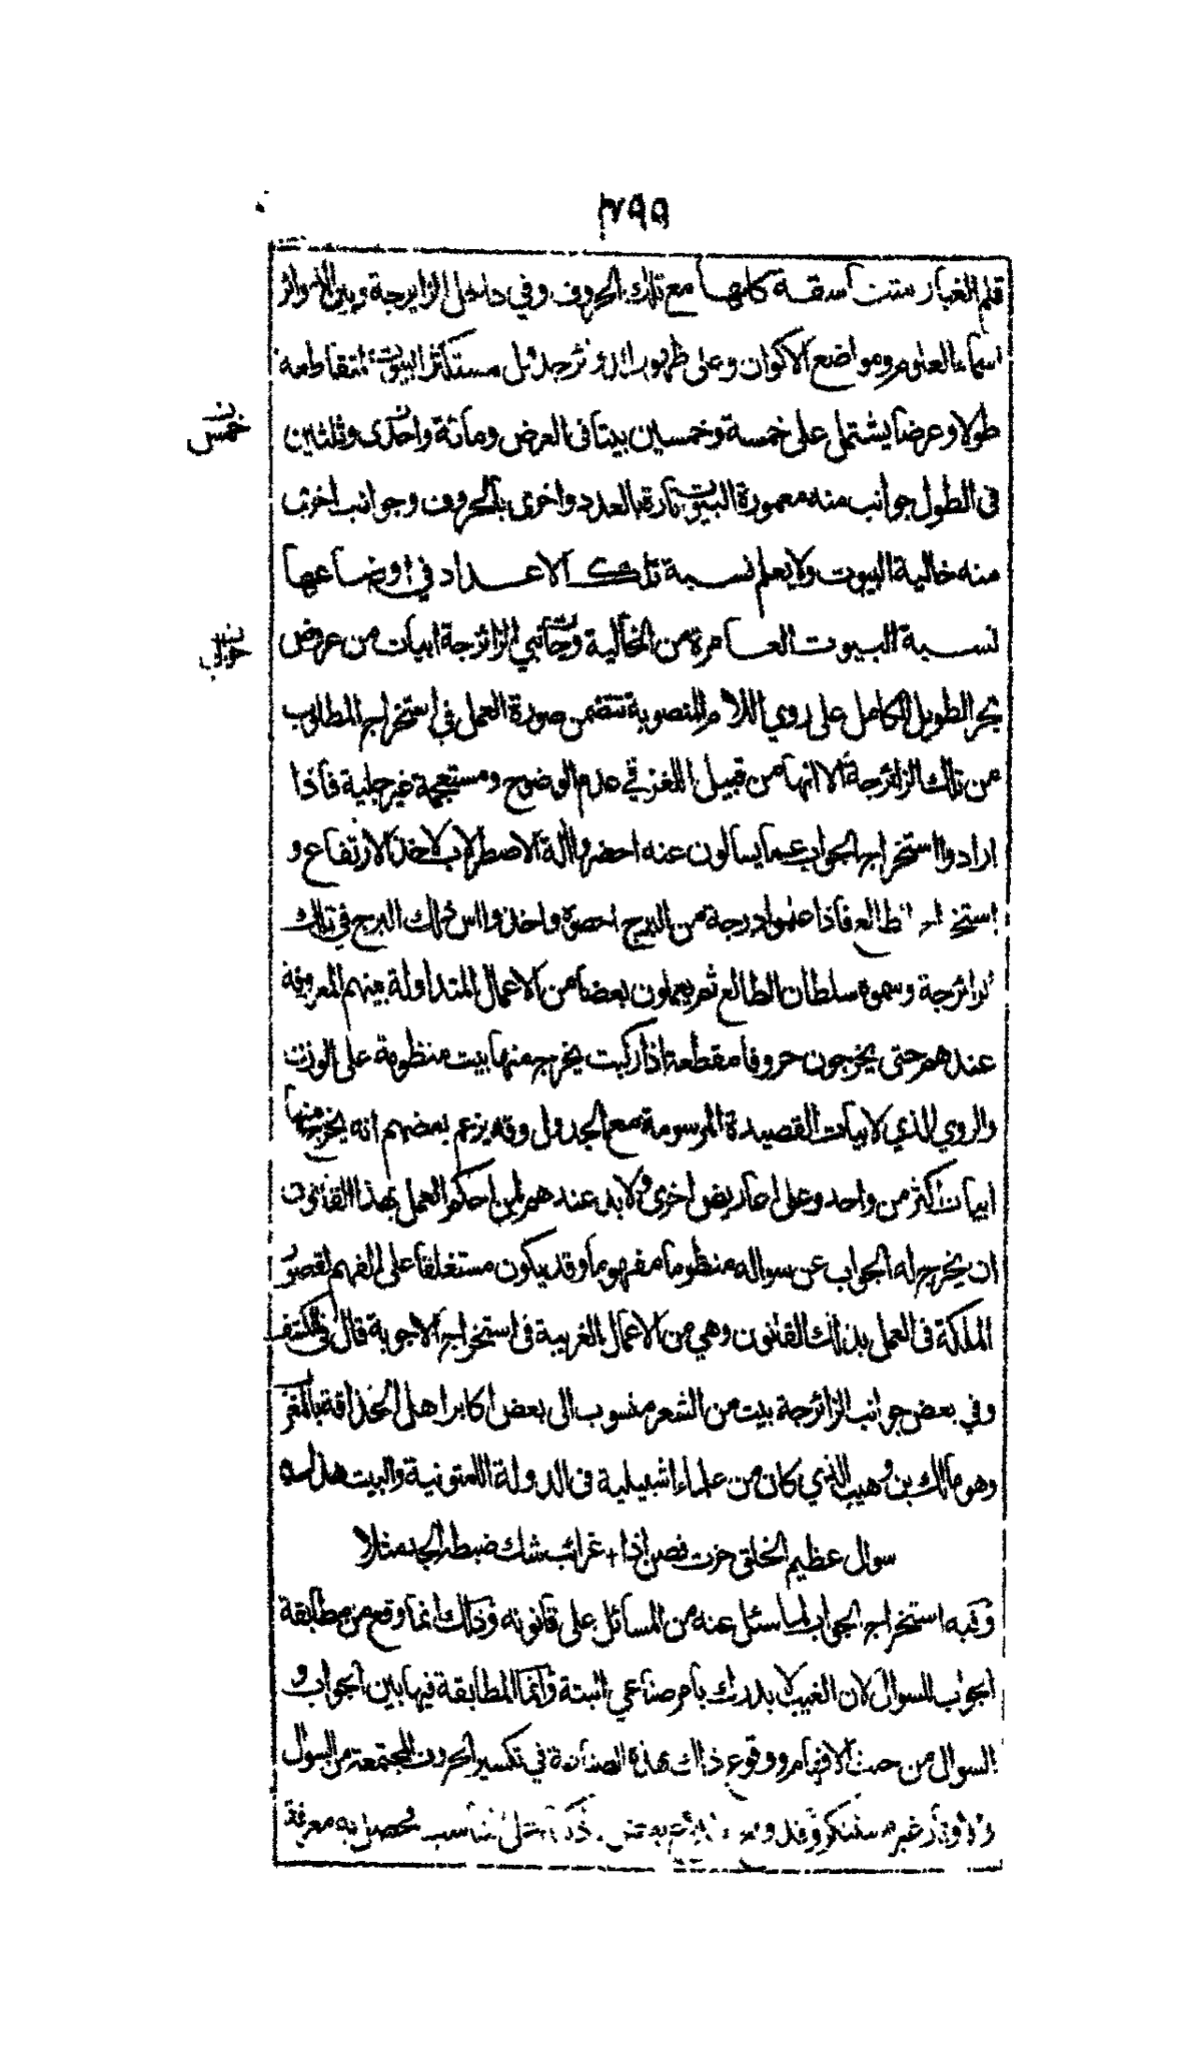 قلم الغبار متناسقة كلها مع تلك الحروف وفي داخل الزايرجة وبين الدوائر
اسماء العلوم ومواضع الاكوان وعلى ظهور الدوائر جدول مستكثر البيوت المتقاطعة
طولا وعرضا يشتمل على خمسة وخمسين بيتا في العرض ومائة واحدى وثلثين
خمس
في الطول جوانب منه معمورة البيوت تارة بالعدد واخرى بالحروف وجوانب اخرى
منه خالية البيوت ولا يعلم نسبة تلك الاعداد في اوضاعها
نسبة البيوت العامرة من الخالية وجانبي الزائرجة ابيات من عروض
بحر الطويل الكامل على روي اللام المنصوبة تتضمن صورة العمل في استخراج المطلوب
من تلك الزائرجة الا انها من قبيل اللغز في عدم الوضوح ومستعجمة غير جلية فاذا
ارادوا استخراج الجواب عما يسالون عنه احضروا آلة الاصطرلاب لاخذ الارتفاع و
استخراج الطالع فاذا علموا درجة من البرج احصوه واخذوا اس ذلك البرج في تلك
الزائرجة وسموه سلطان الطالع ثم يعملون بعضا من الاعمال المتداولة بينهم المعروفة
عندهم حتى يخرجون حروفا مقطعة اذا ركبت يخرج منها بيت منظومة على الوزن
والروي الذي لابيات القصيدة المرسومة مع الجدول وقد يزعم بعضهم انه يخرج منها
ابيات اكثر من واحد وعلى اعاريض اخرى ولا بد عندهم لمن احكم العمل بهذا القانون
ان يخرج له الجواب عن سواله منظوما مفهوما وقد يكون مستغلقا على الفهم لقصور
الملكة في العمل بذلك القانون وهي من الاعمال الغريبة في استخراج الاجوبة قال في الكشف
وفي بعض جوانب الزائرجة بيت من الشعر منسوب الى بعض اكابر اهل الحذاقة بالمغرب
وهو مالك بن وهيب الذي كان من علماء اشبيلية في الدولة اللمتونية والبيت هذا
سوال عظيم الخلق حزت فصن اذا + غرائب شك ضبطه الجد مثلا
وبه استخراج الجواب لما سئل عنه من المسائل على قانونه وذلك انما وقع من مطابقة
الجواب للسوال لان الغيب لا يدرك بامر صناعي البتة وانما المطابقة فيها بين الجواب و
السوال من حيث الافهام ووقوع ذلك بهذه الصناعة في تكسير الحروف المجتمعة من السوال
والاوتار غير مستنكر وقد تناسب يحصل به معرفة